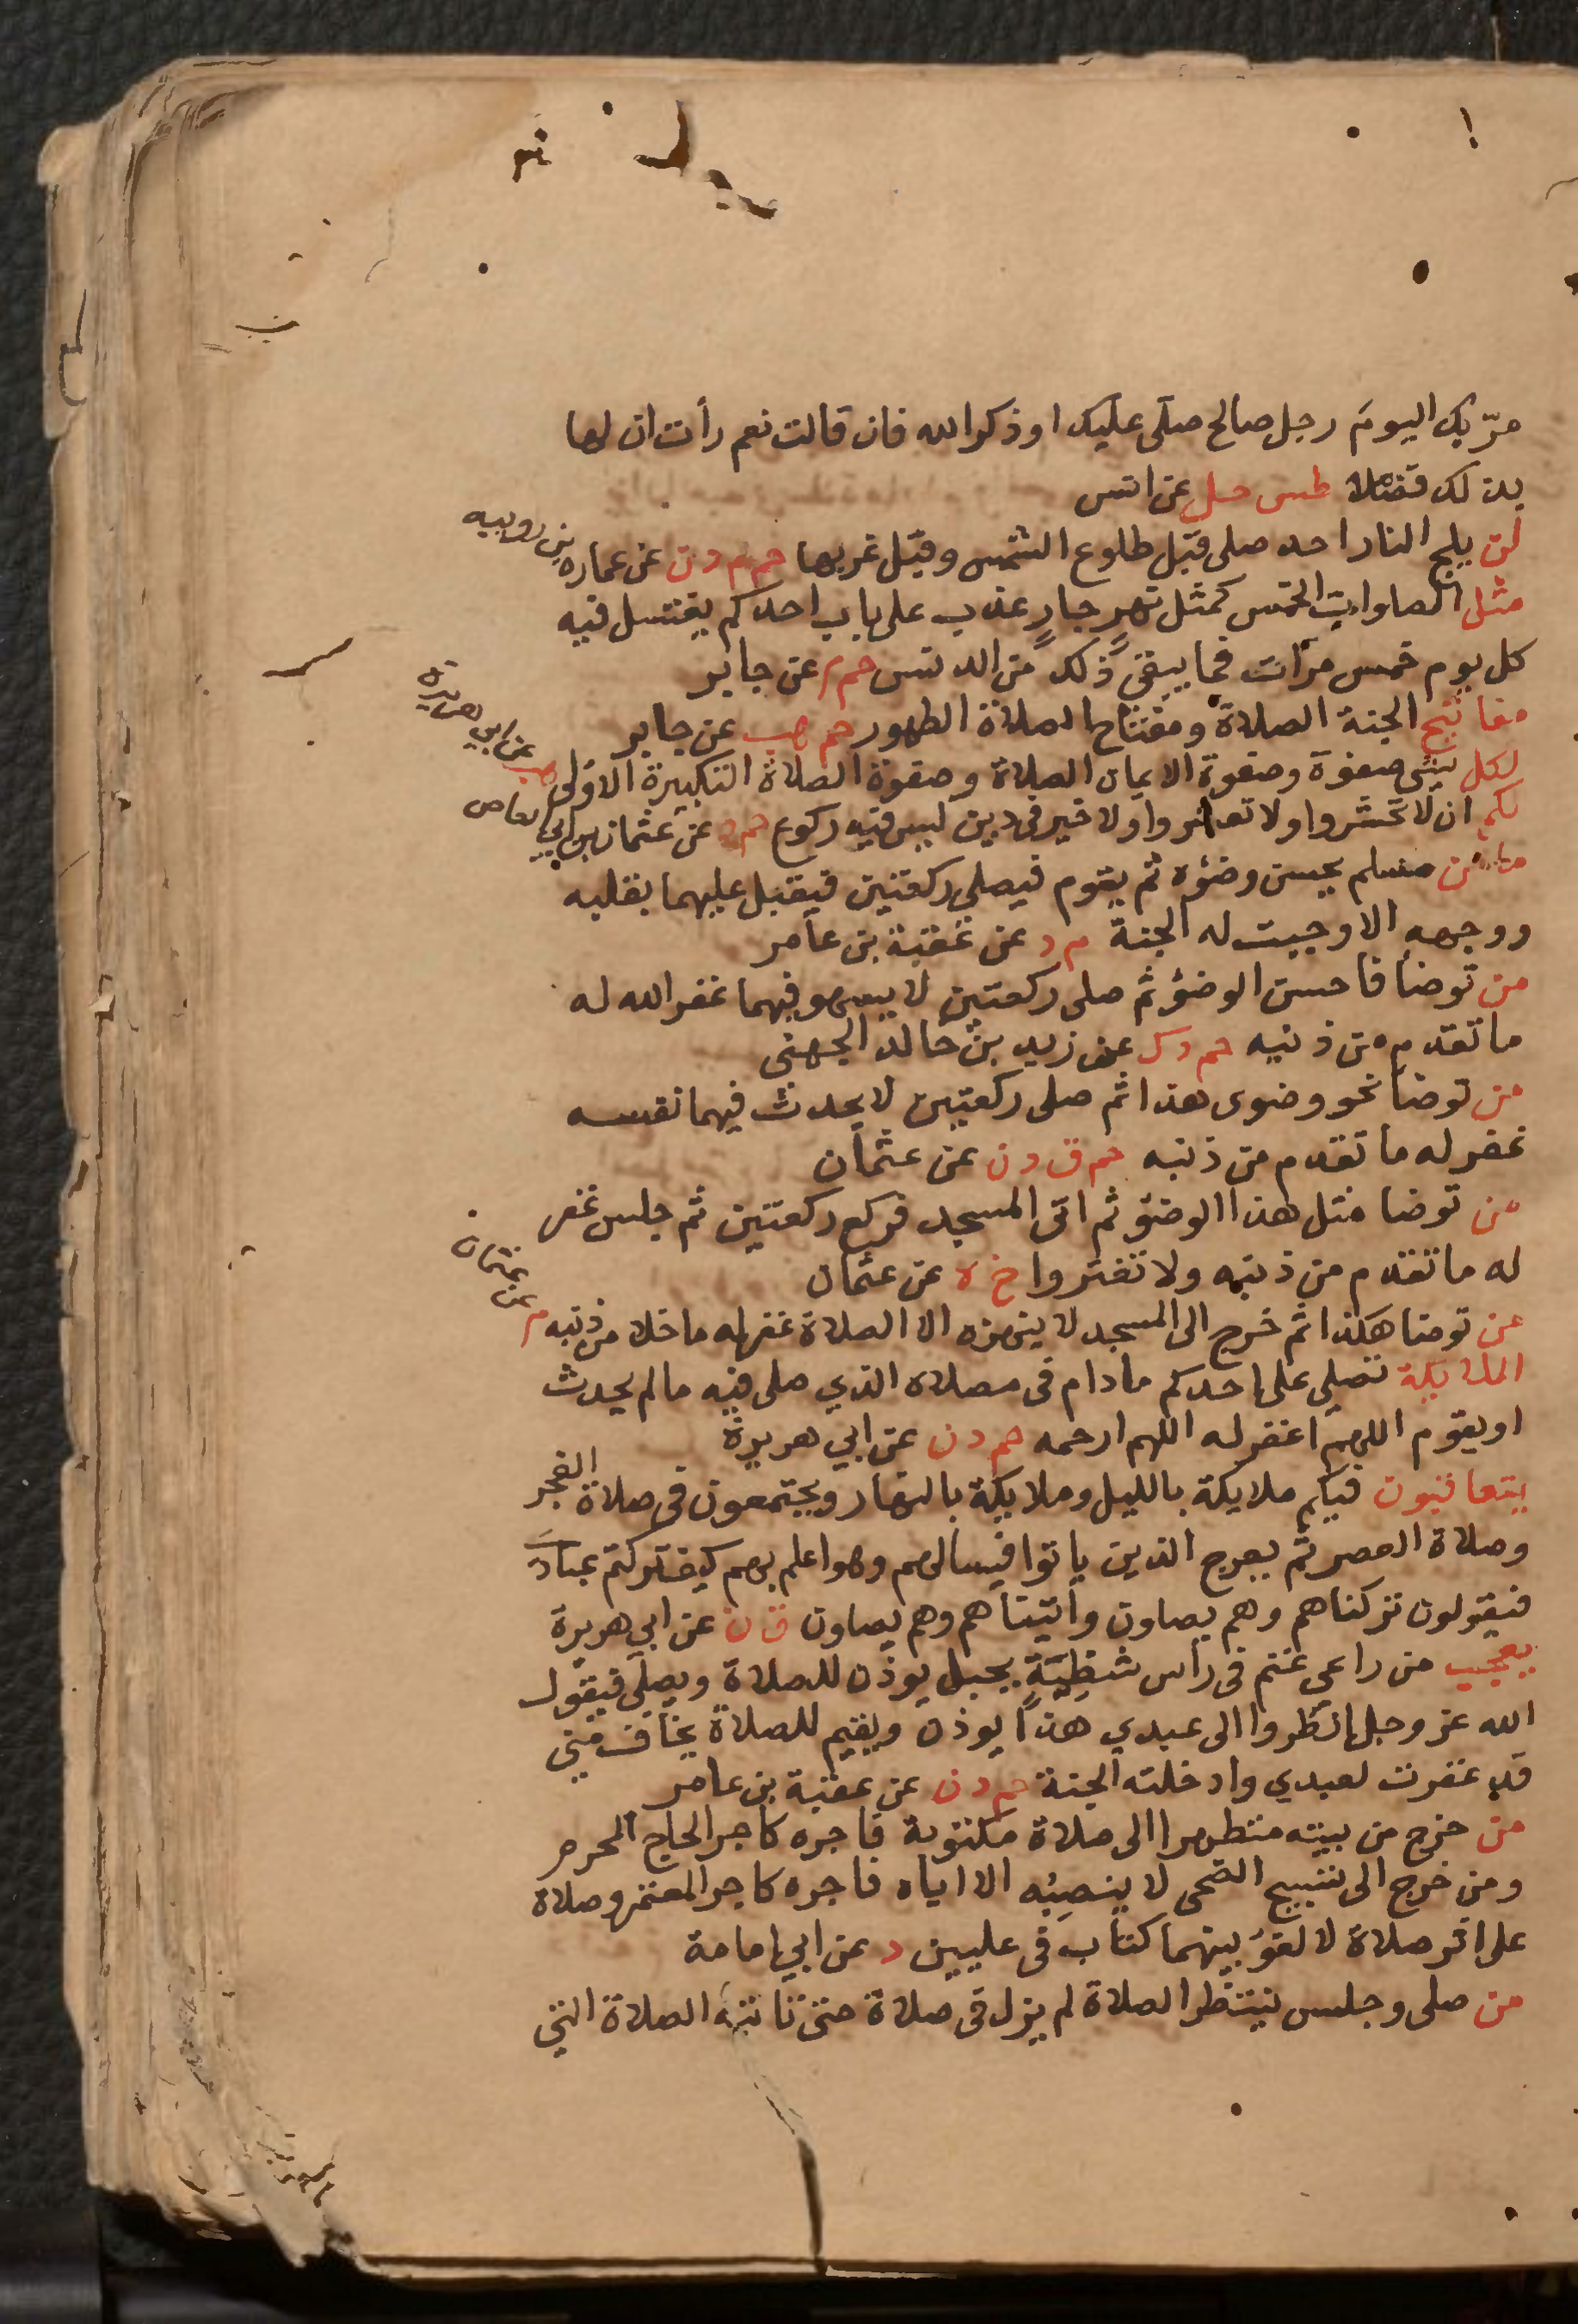 مرّ بك اليوم رجل صالح صلى عليك او ذكر الله فان قالت نعم رأت ان لها
بذلك فضلا طس حل عن انس
لن يلج النار احد صلى قبل طلوع الشمس وقبل غربها حم م د ن عن عماره بن روبيه
مثل الصلوات الخمس كمثل نهر جارٍ عذب على باب احدكم يغتسل فيه
كل يوم خمس مرات فما يبقى ذلك من الدنس حم م عن جابر
مفاتيح الجنة الصلاة ومفتاح الصلاة الطهور حم هب عن جابر
لكل شئ صفوة وصفوة الايمان الصلاة وصفوة الصلاة التكبيرة الاولى هب عن ابي هريرة
لكم ان لا تحشروا ولا تعشروا ولا خير في دين ليس فيه ركوع حم د عن عثمان بن ابي العاص
ما من مسلم يحسن وضؤه ثم يقوم فيصلي ركعتين فيقبل عليهما بقلبه
ووجهه الا وجبت له الجنة م د عن عقبة بن عامر
من توضأ فاحسن الوضؤ ثم صلى ركعتين لا يسهو فيهما غفر الله له
ما تقدم من ذنبه حم د ك عن زيد بن خالد الجهنى
من توضأ نحو وضوى هذا ثم صلى ركعتين لا يحدث فيهما نفسه
غفر له ما تقدم من ذنبه حم ق د ن عن عثمان
من توضا مثل هذا الوضؤ ثم اتى المسجد فركع ركعتين ثم جلس غفر
له ما تقدم من ذنبه ولا تغتروا خ ه عن عثمان
من توضا هكذا ثم خرج الى المسجد لا ينهزه الا الصلاة غفر له ما خلا من ذنبه م عن عثمان
الملايكة تصلي على احدكم ما دام في مصلاه الذي صلى فيه ما لم يحدث
او يقوم اللهم اغفر له اللهم ارحمه حم د ن عن ابي هريرة
يتعاقبون فيكم ملايكة بالليل وملايكة بالنهار ويجتمعون في صلاة الفجر
وصلاة العصر ثم يعرج الذين باتوا فيسالهم وهو اعلم بهم كيف تركتم عبادي
فيقولون تركناهم وهم يصلون وأتيناهم وهم يصلون ق ن عن ابي هريرة
يعجب من راعي غنم في رأس شظِيَّةٍ بجبل يوذن للصلاة ويصلي فيقول
الله عز وجل انظروا الى عبدي هذا يوذن ويقيم للصلاة يخاف مني
قد غفرت لعبدي وادخلته الجنة حم د ن عن عقبة بن عامر
من خرج من بيته متطهرا الى صلاة مكتوبة فاجره كاجر الحاج المحرم
ومن خرج الى تسبيح الضحى لا ينصِبُه الا اياه فاجره كاجر المعتمر وصلاة
على اثر صلاة لا لغو بينهما كتاب في عليين د عن ابي امامة
من صلى وجلس ينتظر الصلاة لم يزل في صلاة حتى تاتيه الصلاة التي